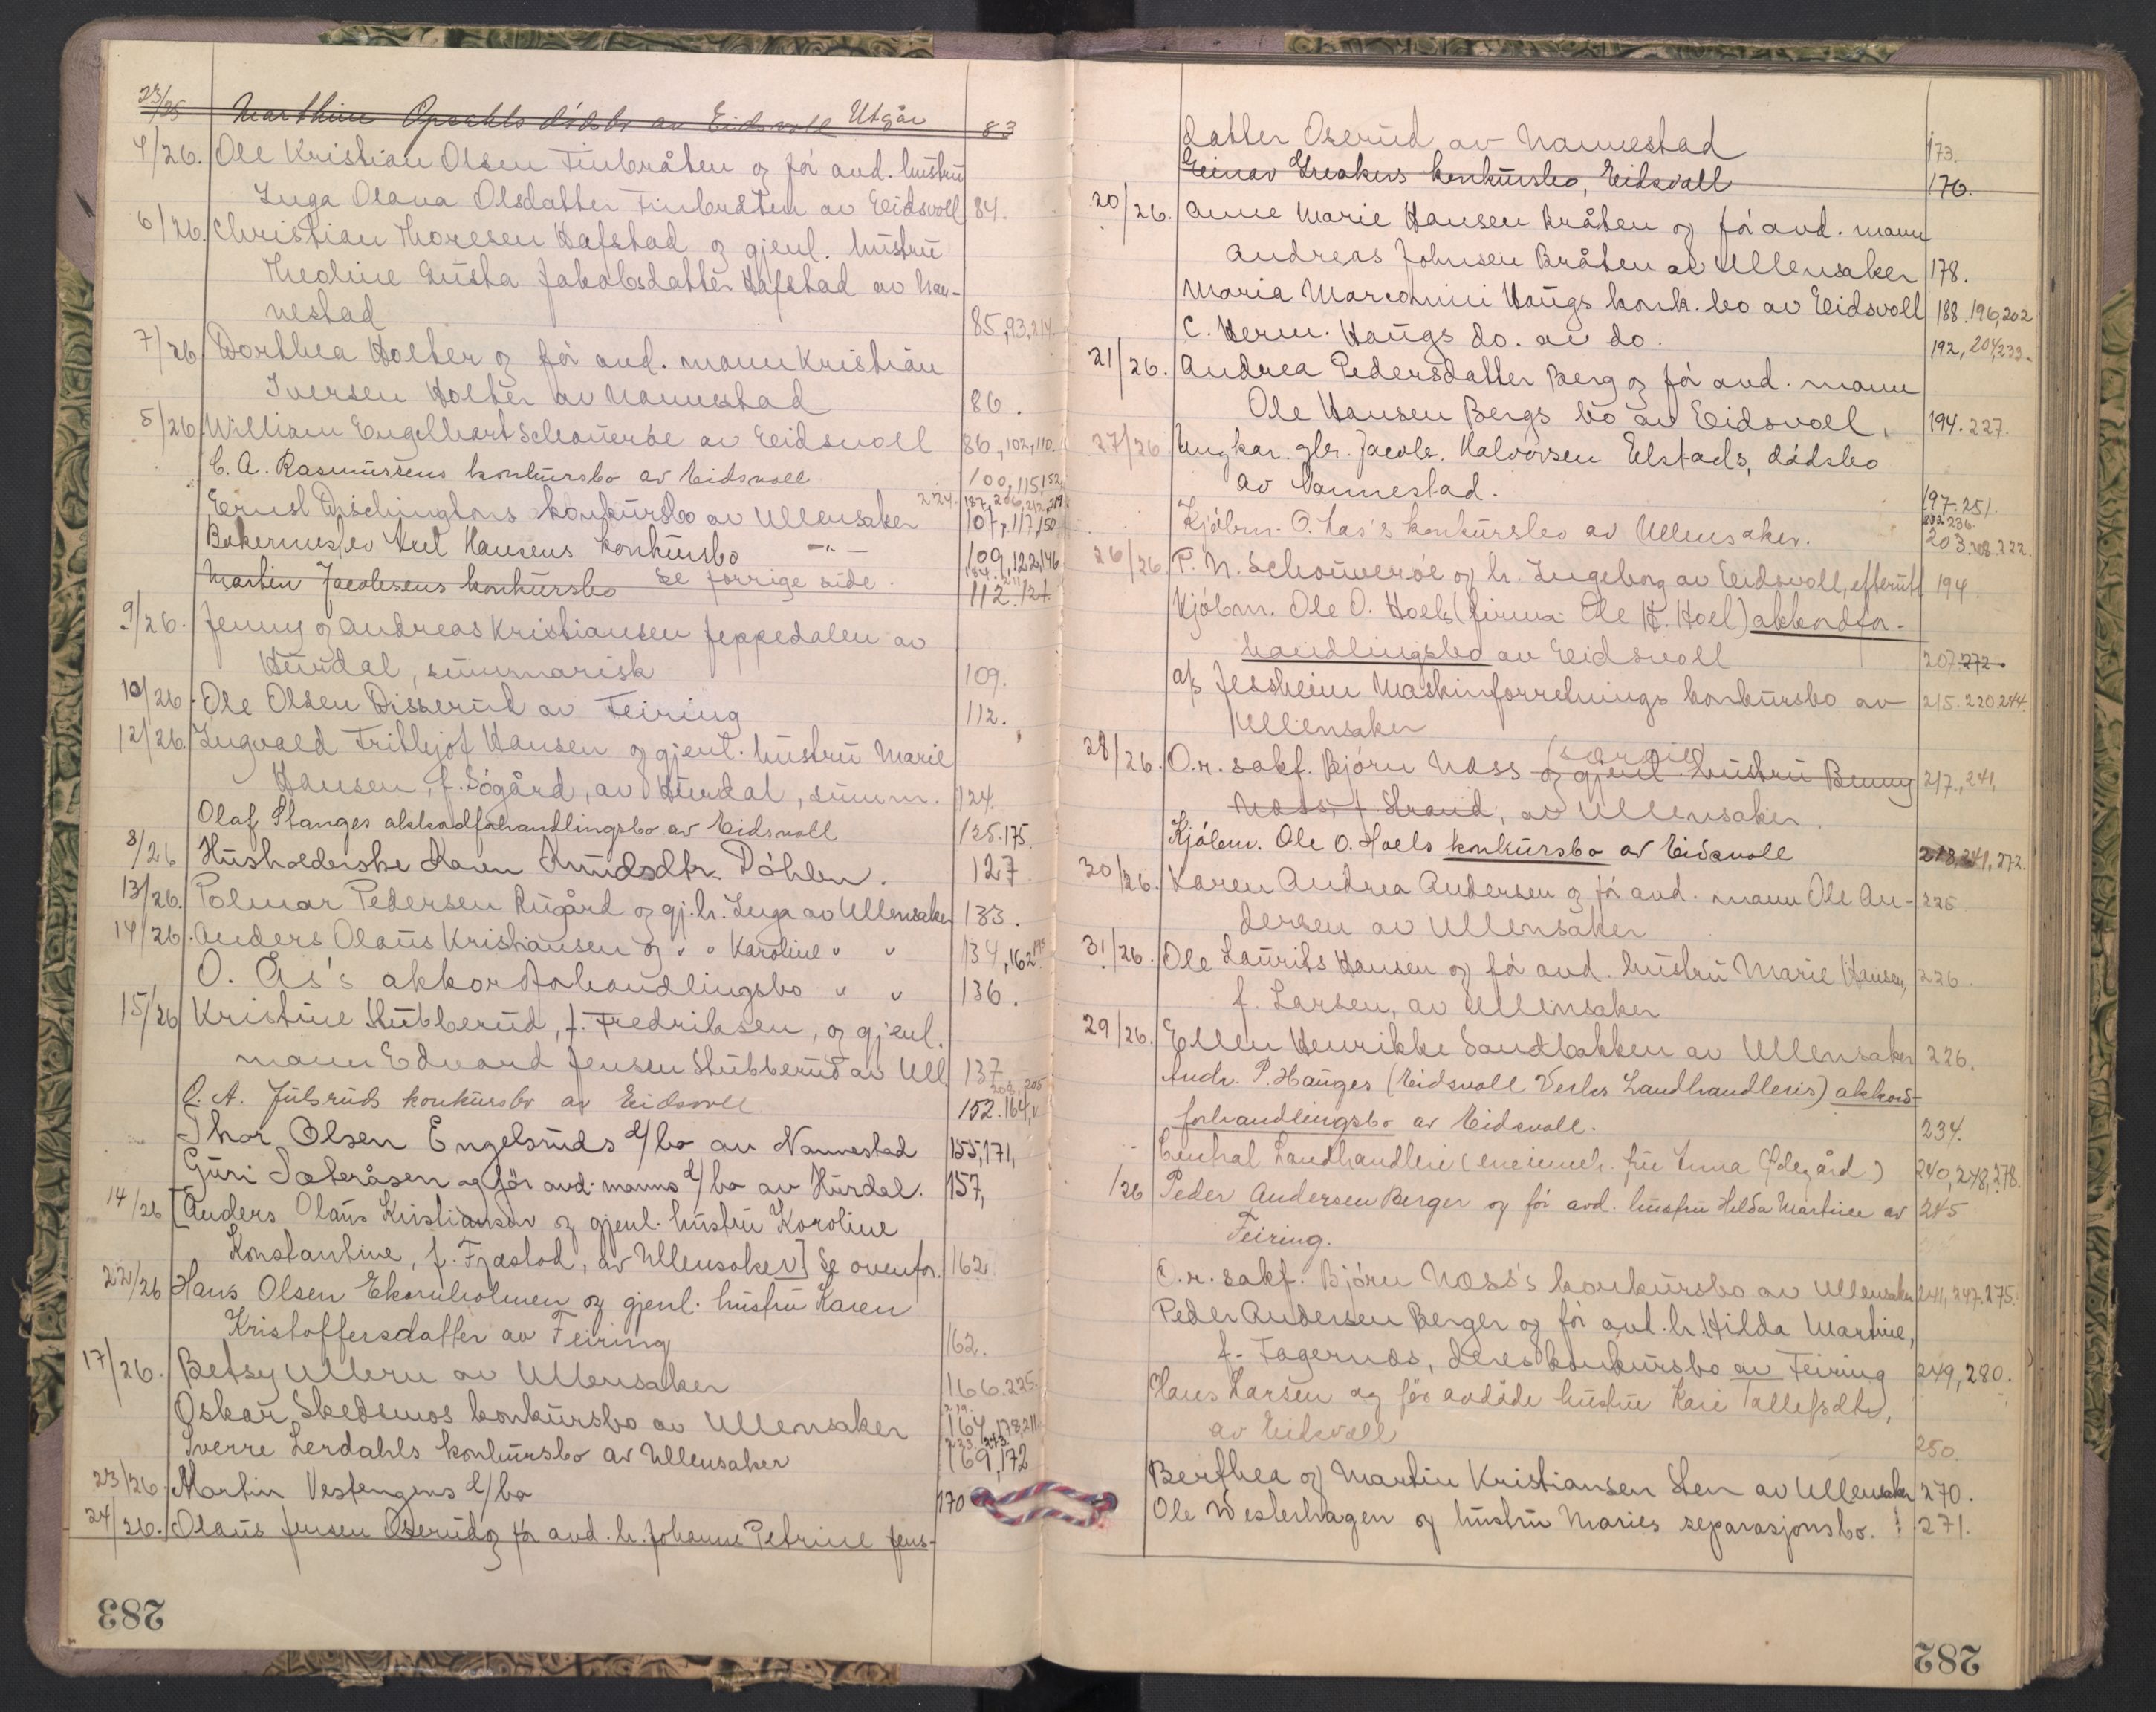 23/25 Marthine Opsahls dödsbo av Eidsvoll Utgår 83
4/26. Ole Kristian Olsen Finbråten og för avd. hustru
Inga Olava Olsdatter Finbråten av Eidsvoll 84.
6/26. Christian Thoresen Hafstad og gjenl. hustru
Theoline Gusta Jakobsdatter Hafstad av Nan-
nestad 85, 93, 214.
7/26 Dorthea Holter og för avd. mann Kristian
Iversen Holter av Nannestad 86.
5/26 William Engelhart Schoueröe av Eidsvoll 86, 102, 110.
C. A. Rasmussens konkursbo av Eidsvoll 100, 115, 152,
Ernst Dischingtons konkursbo av Ullensaker 224. 187, 206, 212, 219 107, 117, 150
Bakermester Kut Hansens konkursbo —"— 109, 122, 146
Martin Jacobsens konkursbo se forrige side. 112. 124.
9/26. Jenny og Andreas Kristiansen Jeppedalen av
Hurdal, summarisk 109.
10/26. Ole Olsen Disserud av Feiring 112.
12/26. Ingvald Frithjof Hansen og gjenl. hustru Marie
Hansen, f. Sögård, av Hurdal, summ. 124.
Olaf Stanges akkordforhandlingsbo av Eidsvoll 125. 175.
8/26 Husholderske Karen Amundsdtr. Döhlen. 127
13/26. Polmar Pedersen Rugård og gj. h. Inga av Ullensaker 133.
14/26. Anders Olaus Kristiansen og " " Karoline " " 134, 162
O. Ås's akkordforhandlingsbo " " 136.
15/26 Kristine Stubberud, f. Fredriksen, og gjenl.
mann Edvard Jensen Stubberud av Ull 137
O. A. Julsruds konkursbo av Eidsvoll 152. 164,
Thor Olsen Engelsruds d/bo av Nannestad 155, 171,
Guri Sæteråsen og för avd. manns d/bo av Hurdal. 157,
14/26 [Anders Olaus Kristiansen og gjenl. hustru Karoline
Konstantine, f. Fjæstad, av Ullensaker] Se ovenfor. 162
22/26 Hans Olsen Ekornholmen og gjenl. hustru Karen
Kristoffersdatter av Feiring 162.
17/26. Betsy Ullern av Ullensaker 166. 225.
Oskar Skedsmos konkursbo av Ullensaker 164, 178, 211
Sverre Lerdahls konkursbo av Ullensaker 169, 172
23/26. Martin Vestengens d/bo 170
24/26. Olaus Jensen Oserud og för avd. h. Johanne Petrine Jens-
283
datter Oserud av Nannestad 173.
Einar Greakers konkursbo, Eidsvoll 176.
20/26. Anne Marie Hansen Bråten og för avd. mann
Andreas Johnsen Bråten av Ullensaker 178.
Maria Marconini Haugs konk. bo av Eidsvoll 188. 196, 202
C. Herm. Haugs do. av do. 192, 204, 233.
21/26. Andrea Pedersdatter Berg og för avd. mann
Ole Hansen Bergs bo av Eidsvoll. 194. 227.
27/26 Ungkar. gbr. Jacob Halvorsen Elstads, dödsbo
av Nannestad. 197. 251.
Kjöbm. O. Ås's konkursbo av Ullensaker. 232 236. 203. 208. 222.
26/26 P. N. Schouweröe og h. Ingeborg av Eidsvoll, efterutl. 194.
Kjöbm. Ole O. Hoels (firma Ole H. Hoel) akkordfor-
handlingsbo av Eidsvoll 207. 272.
a/s Jessheim Maskinforretnings konkursbo av 215. 220. 244.
Ullensaker
28/26. O.r. sakf. Björn Næss (særeie) og gjenl. hustru Benny 217, 241,
Næss, f. Strand, av Ullensaker.
Kjöbm. Ole O. Hoels konkursbo av Eidsvoll 218, 241, 272.
30/26. Karen Andrea Andersen og för avd. mann Ole An- 225
dersen av Ullensaker
31/26. Ole Laurits Hansen og för avd. hustru Marie Hansen, 226.
f. Larsen, av Ullensaker
29/26. Ellen Henrikke Sandbakken av Ullensaker 226.
Andr. P. Hauges (Eidsvoll Verks Landhandleris) akkord-
forhandlingsbo av Eidsvoll. 234.
Central Landhandleri (eneinneh. fru Anna Ödegård) 240, 248, 278.
/26 Peder Andersen Berger og för avd. hustru Hilda Martine av 245
Feiring.
O.r. sakf. Björn Næss's konkursbo av Ullensaker 241, 247. 275.
Peder Andersen Berger og för avd. h. Hilda Martine,
f. Fagernæs, deres konkursbo av Feiring 249, 280.
Hans Larsen og för avdöde hustru Kari Tollefsdtr.,
av Eidsvoll 250.
Berthea og Martin Kristiansen Sten av Ullensaker 270.
Ole Westerhagen og hustru Maries separasjonsbo. 271.
282